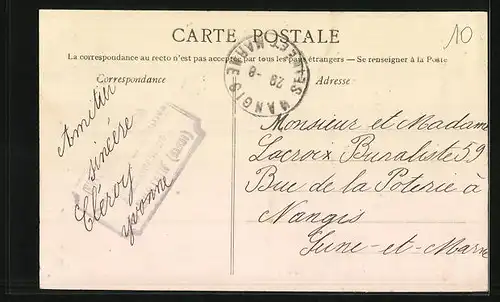 CARTE POSTALE
10
La correspondance au recto n'est pas acceptée par tous les pays étrangers — Se renseigner à la Poste
Correspondance
Adresse
NANGIS
SEINE ET MARNE
29 -8
Amitié
sincère
Cléroy
Yvonne
Monsieur et Madame
Lacroix Buraliste 59
Rue de la Poterie à
Nangis
Seine-et-Marne